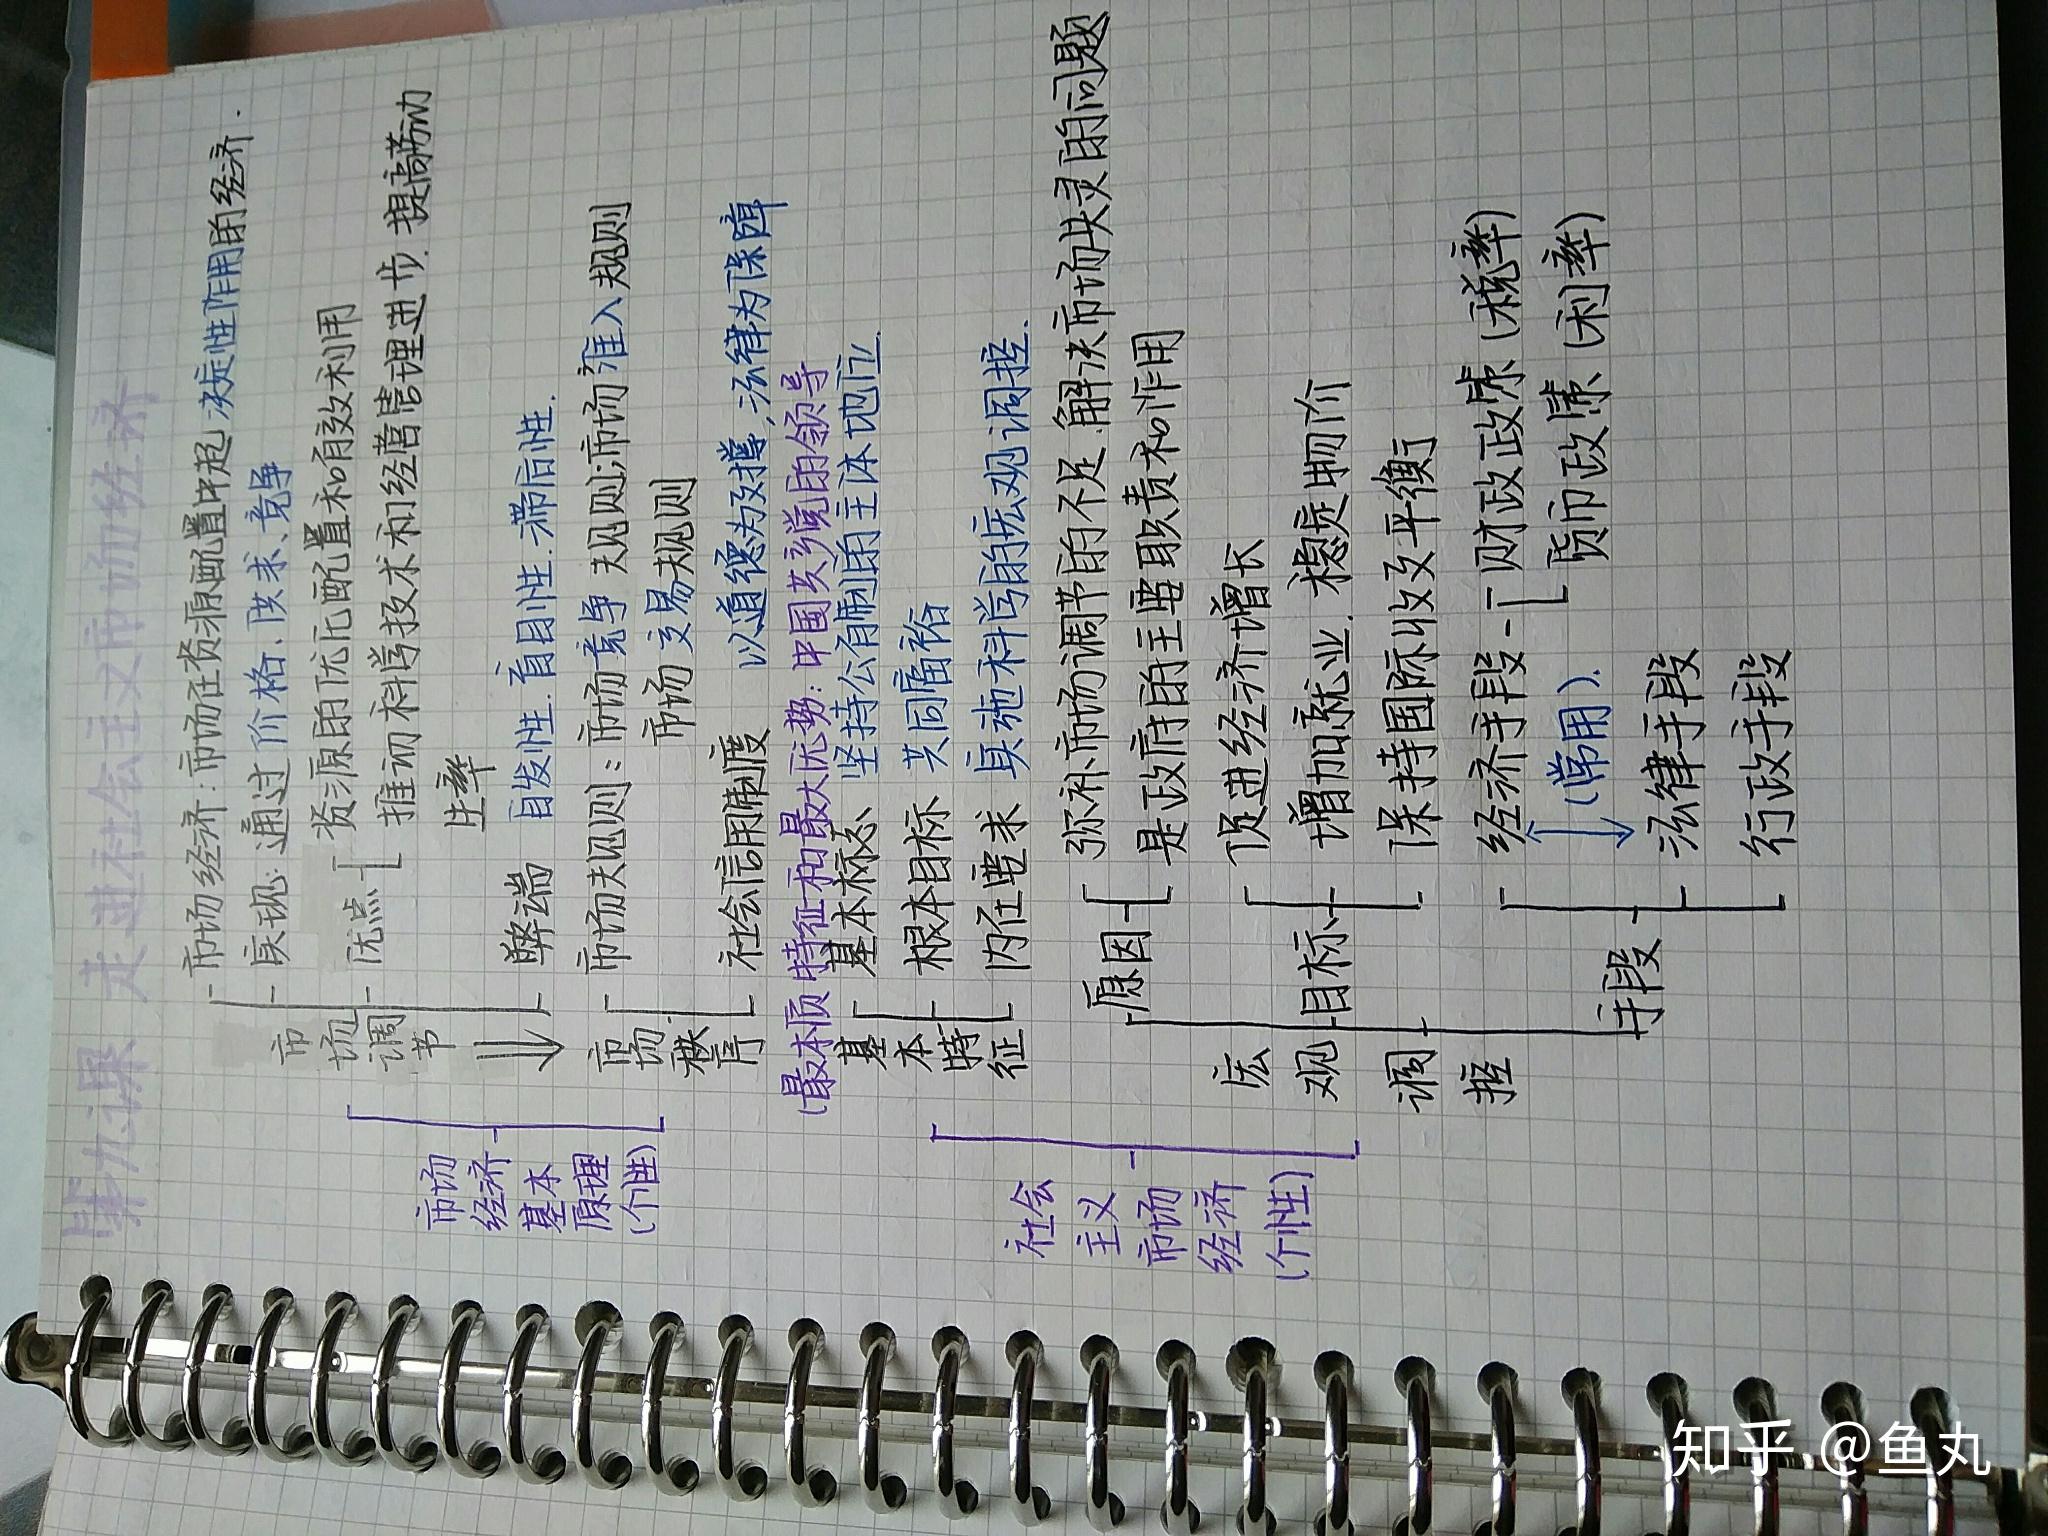 第九课 走进社会主义市场经济
市场经济基本原理(个性)
市场调节
市场经济:市场在资源配置中起决定性作用的经济.
实现:通过价格、供求、竞争
优点
资源的优化配置和有效利用
推动科学技术和经营管理进步.提高劳动
生率
弊端 自发性.盲目性.滞后性.
市场秩序
市场规则:市场竞争规则;市场准入规则
市场交易规则
社会信用制度 以道德为支撑,法律为保障
社会主义市场经济(个性)
(最本质特征和最大优势:中国共产党的领导
基本特征
基本标志 坚持公有制的主体地位
根本目标 共同富裕
内在要求 实施科学的宏观调控.
宏观调控
原因
弥补市场调节的不足.解决市场失灵的问题
是政府的主要职责和作用
目标
促进经济增长
增加就业.稳定物价
保持国际收支平衡
手段
经济手段
财政政策(税率)
货币政策(利率)
(常用).
法律手段
行政手段
知乎 @鱼丸